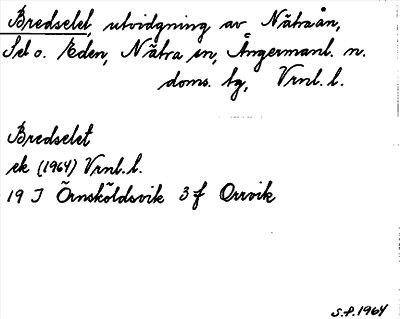 Bredselet, utvidgning av Nätraån,
Sel o. Eden, Nätra sn, Ångermanl. n.
doms. tg, Vrnl. l.
Bredselet
ek (1964) Vrnl. l.
19 J Örnsköldsvik 3 f Orrvik
S.P. 1964